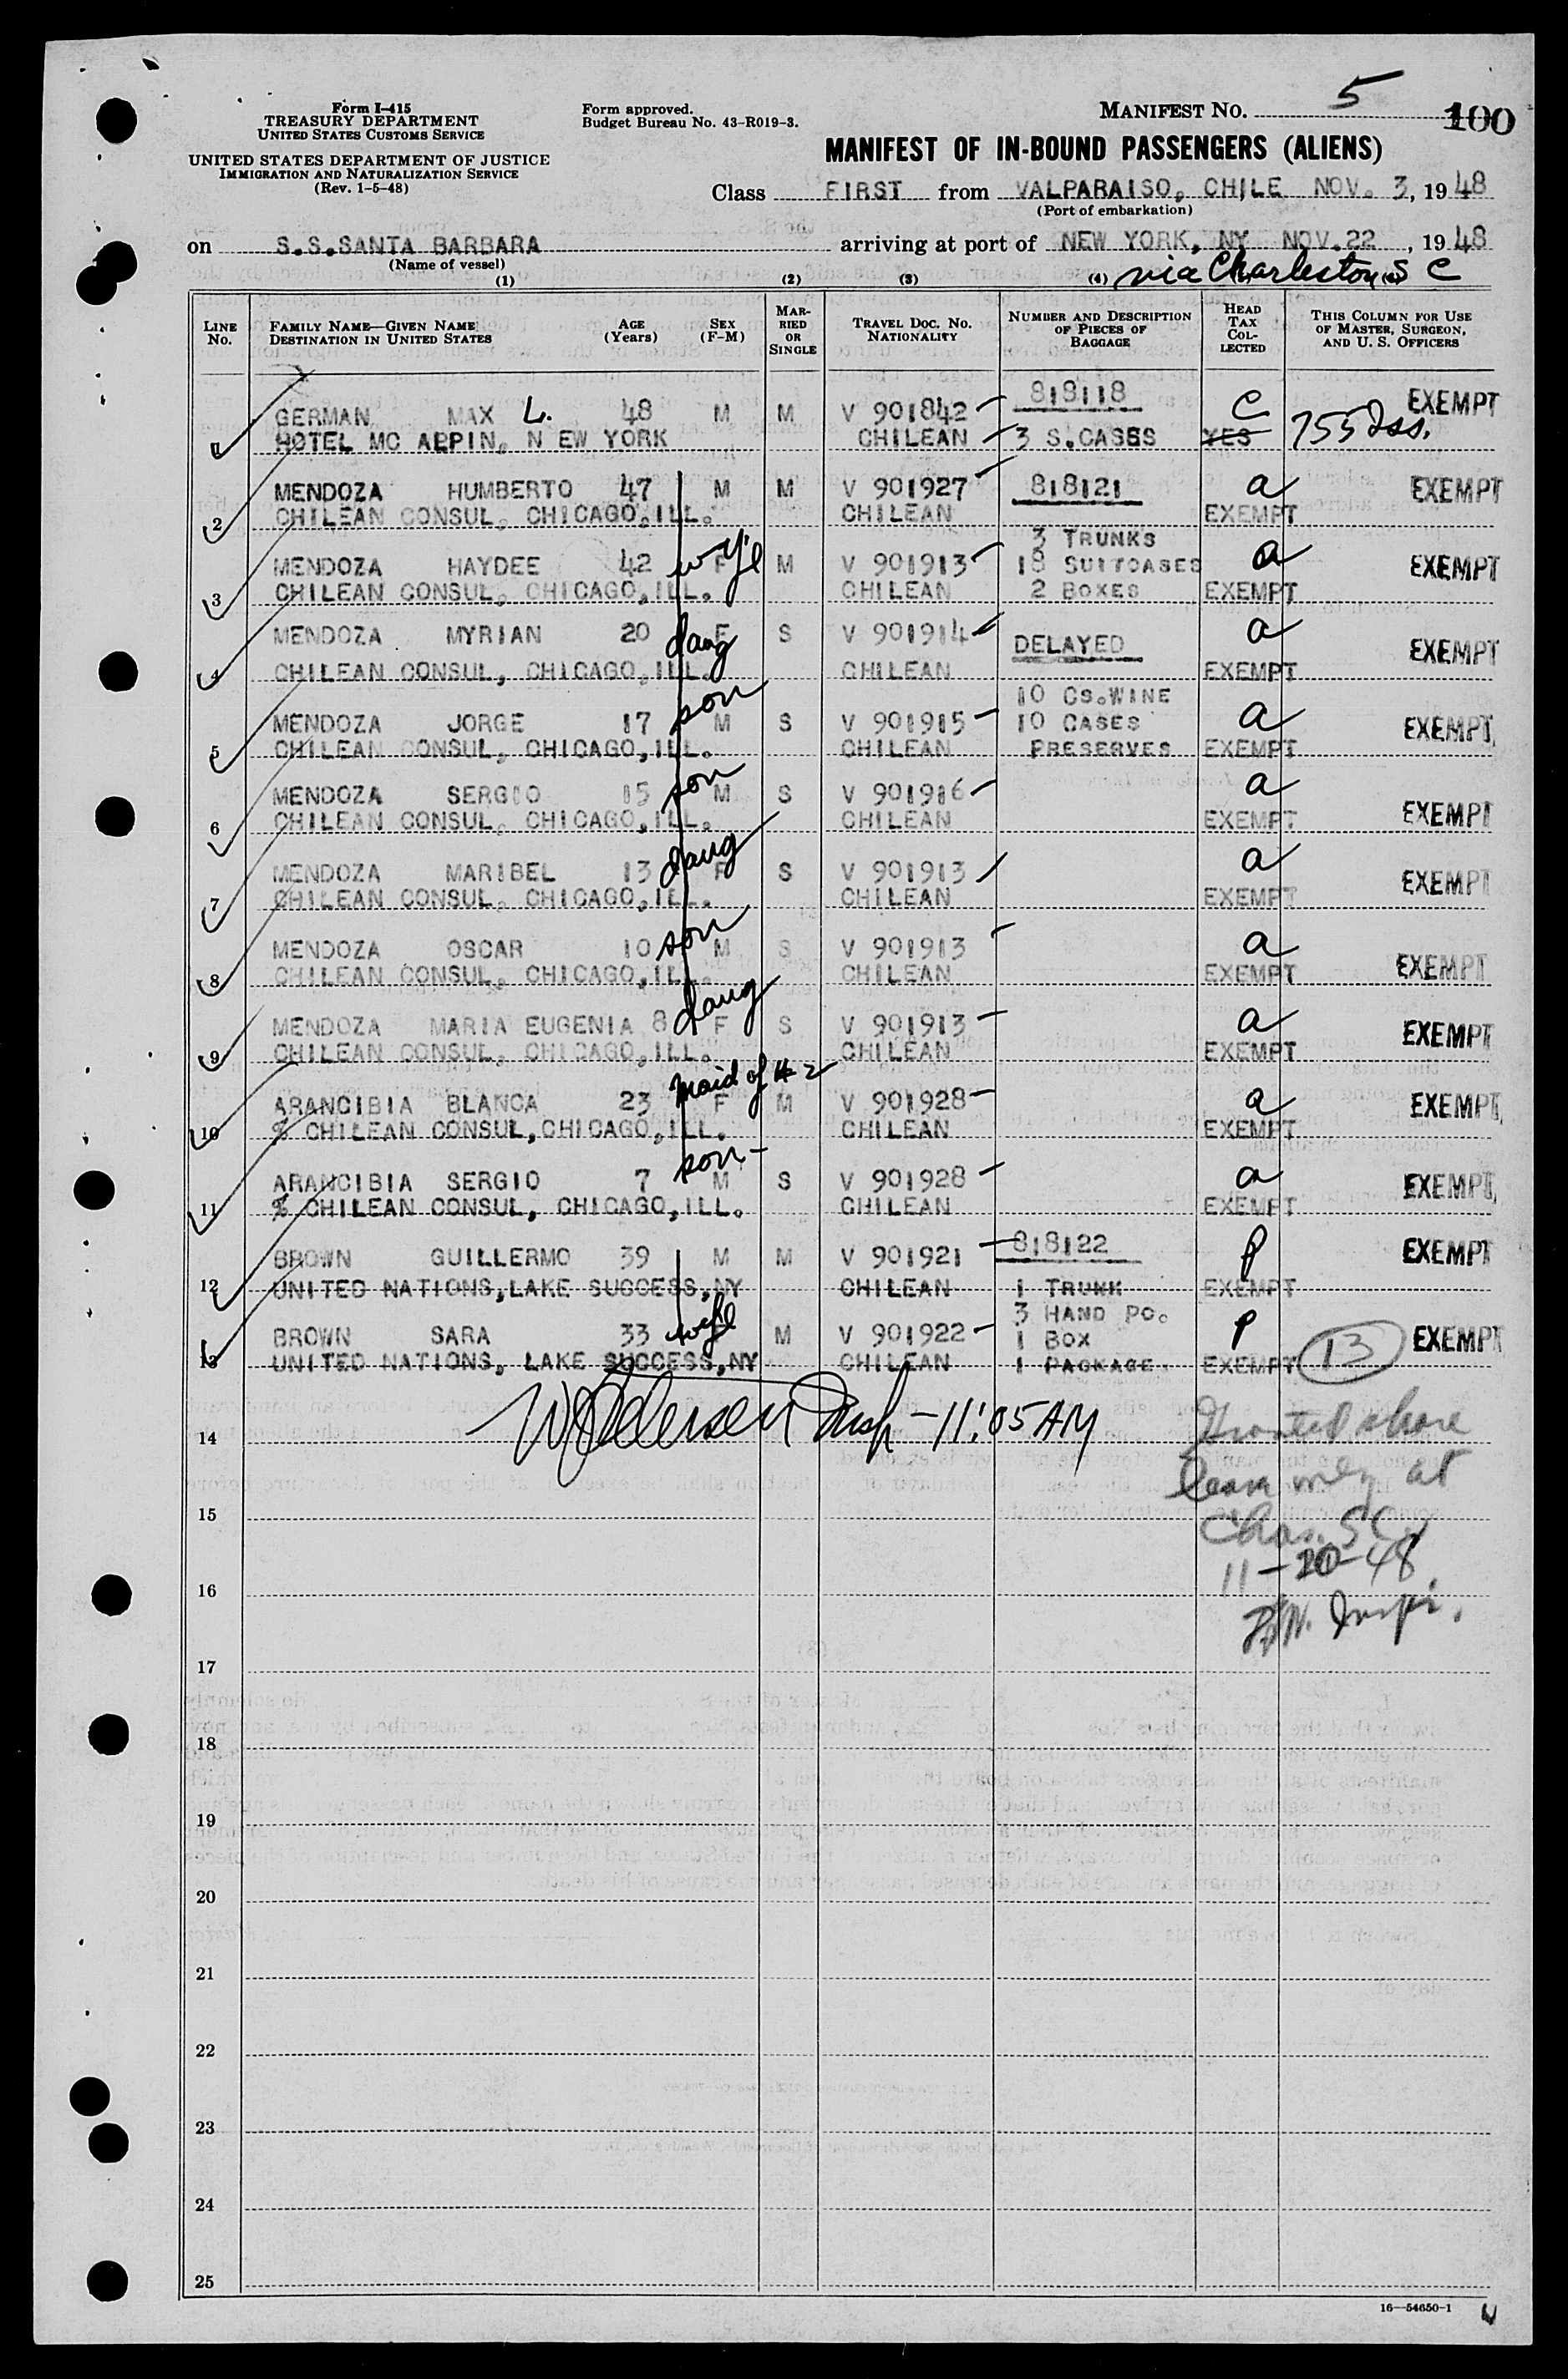 Form I-415
TREASURY DEPARTMENT
UNITED STATES CUSTOMS SERVICE
UNITED STATES DEPARTMENT OF JUSTICE
IMMIGRATION AND NATURALIZATION SERVICE
(Rev. 1-5-48)
Form approved.
Budget Bureau No. 43-R019-3.
MANIFEST NO. 5
100
MANIFEST OF IN-BOUND PASSENGERS (ALIENS)
Class FIRST from VALPARAISO, CHILE NOV. 3, 1948
(Port of embarkation)
on S.S.SANTA BARBARA arriving at port of NEW YORK, NY NOV.22, 1948
(Name of vessel)
via Charleston S C
(1) (2) (3) (4)
LINE No. FAMILY NAME—GIVEN NAME DESTINATION IN UNITED STATES AGE (Years) SEX (F-M) MARRIED OR SINGLE TRAVEL DOC. NO. NATIONALITY NUMBER AND DESCRIPTION OF PIECES OF BAGGAGE HEAD TAX COLLECTED THIS COLUMN FOR USE OF MASTER, SURGEON, AND U. S. OFFICERS
1 GERMAN MAX L. 48 M M V 901842 818118 C EXEMPT
HOTEL MC ALPIN, N EW YORK CHILEAN 3 S.CASES YES 755
2 MENDOZA HUMBERTO 47 M M V 901927 818121 a EXEMPT
CHILEAN CONSUL, CHICAGO,ILL. CHILEAN EXEMPT
3 TRUNKS
3 MENDOZA HAYDEE 42 wife F M V 901913 18 SUITCASES a EXEMPT
CHILEAN CONSUL, CHICAGO,ILL. CHILEAN 2 BOXES EXEMPT
4 MENDOZA MYRIAN 20 daug F S V 901914 DELAYED a EXEMPT
CHILEAN CONSUL, CHICAGO,ILL. CHILEAN EXEMPT
10 CS.WINE
5 MENDOZA JORGE 17 son M S V 901915 10 CASES a EXEMPT
CHILEAN CONSUL, CHICAGO,ILL. CHILEAN PRESERVES EXEMPT
6 MENDOZA SERGIO 15 son M S V 901916 a EXEMPT
CHILEAN CONSUL, CHICAGO,ILL. CHILEAN EXEMPT
7 MENDOZA MARIBEL 13 daug F S V 901913 a EXEMPT
CHILEAN CONSUL, CHICAGO,ILL. CHILEAN EXEMPT
8 MENDOZA OSCAR 10 son M S V 901913 a EXEMPT
CHILEAN CONSUL, CHICAGO,ILL. CHILEAN EXEMPT
9 MENDOZA MARIA EUGENIA 8 daug F S V 901913 a EXEMPT
CHILEAN CONSUL, CHICAGO,ILL. CHILEAN EXEMPT
10 ARANCIBIA BLANCA 23 maid of # 2 F M V 901928 a EXEMPT
% CHILEAN CONSUL,CHICAGO,ILL. CHILEAN EXEMPT
11 ARANCIBIA SERGIO 7 son M S V 901928 a EXEMPT
% CHILEAN CONSUL, CHICAGO,ILL. CHILEAN EXEMPT
12 BROWN GUILLERMO 39 M M V 901921 818122 P EXEMPT
UNITED NATIONS,LAKE SUCCESS,NY CHILEAN 1 TRUNK EXEMPT
3 HAND PC.
13 BROWN SARA 33 wife M V 901922 1 BOX P EXEMPT
UNITED NATIONS, LAKE SUCCESS,NY CHILEAN 1 PACKAGE. EXEMPT 13
Insp - 11:05 AM
14
Granted shore
leave only at
Chas. S C
11-20-48
Insp.
15
16
17
18
19
20
21
22
23
24
25
16—54650-1